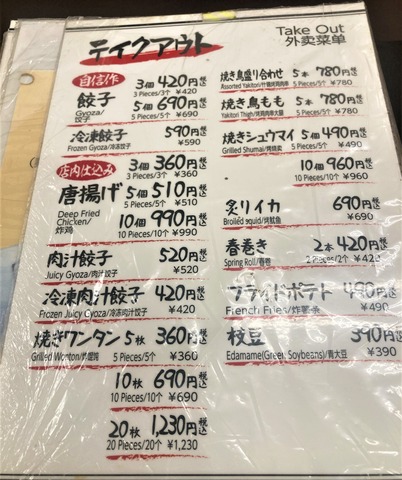 テイクアウト
Take Out
外卖菜单
自信作
餃子 3個 420円 税込
3 Pieces/3个 ¥420
5個 690円 税込
Gyoza/饺子 5 Pieces/5个 ¥690
冷凍餃子 590円 税込
Frozen Gyoza/冷冻饺子 ¥590
店内仕込み
唐揚げ 3個 360円 税込
3 Pieces/3个 ¥360
5個 510円 税込
5 Pieces/5个 ¥510
Deep Fried Chicken/炸鸡
10個 990円 税込
10 Pieces/10个 ¥990
肉汁餃子 520円 税込
Juicy Gyoza/肉汁饺子 ¥520
冷凍肉汁餃子 420円 税込
Frozen Juicy Gyoza/冷冻肉汁饺子 ¥420
焼きワンタン 5枚 360円 税込
Grilled Wonton/炸馄饨 5 Pieces/5个 ¥360
10枚 690円 税込
10 Pieces/10个 ¥690
20枚 1,230円 税込
20 Pieces/20个 ¥1,230
焼き鳥盛り合わせ 5本 780円 税込
Assorted Yakitori/什锦烤鸡肉串 5 Pieces/5个 ¥780
焼き鳥もも 5本 780円 税込
Yakitori Thigh/烤鸡肉串大腿 5 Pieces/5个 ¥780
焼きシュウマイ 5個 490円 税込
Grilled Shumai/烤烧卖 5 Pieces/5个 ¥490
10個 960円 税込
10 Pieces/10个 ¥960
炙りイカ 690円 税込
Broiled squid/烤鱿鱼 ¥690
春巻き 2本 420円 税込
Spring Roll/春卷 2 Pieces/2个 ¥420
フライドポテト 490円 税込
French Fries/炸薯条 ¥490
枝豆 390円 税込
Edamame(Green Soybeans)/青大豆 ¥390